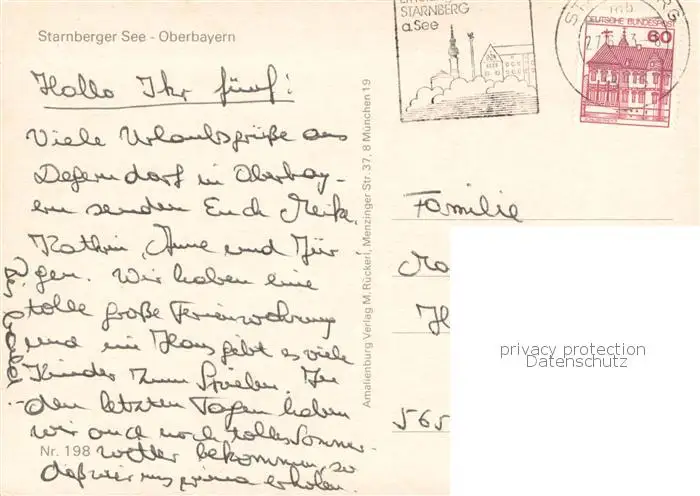 Starnberger See - Oberbayern
Hallo Ihr fünf!
Viele Urlaubsgrüße aus
Degerndorf in Oberbay-
ern senden Euch Meike,
Kathrin, Anne und Jür-
gen. Wir haben eine
tolle große Ferienwohnung
und im Haus gibt es viele
Kinder zum Spielen. In
den letzten Tagen haben
wir auch noch tolles Sommer-
wetter bekommen, so
daß wir uns prima erholen.
Nr. 198
Amalienburg Verlag M. Rückerl, Menzinger Str. 37, 8 München 19
STARNBERG
a.See
DEUTSCHE BUNDESPOST
60
Familie
565
privacy protection
Datenschutz